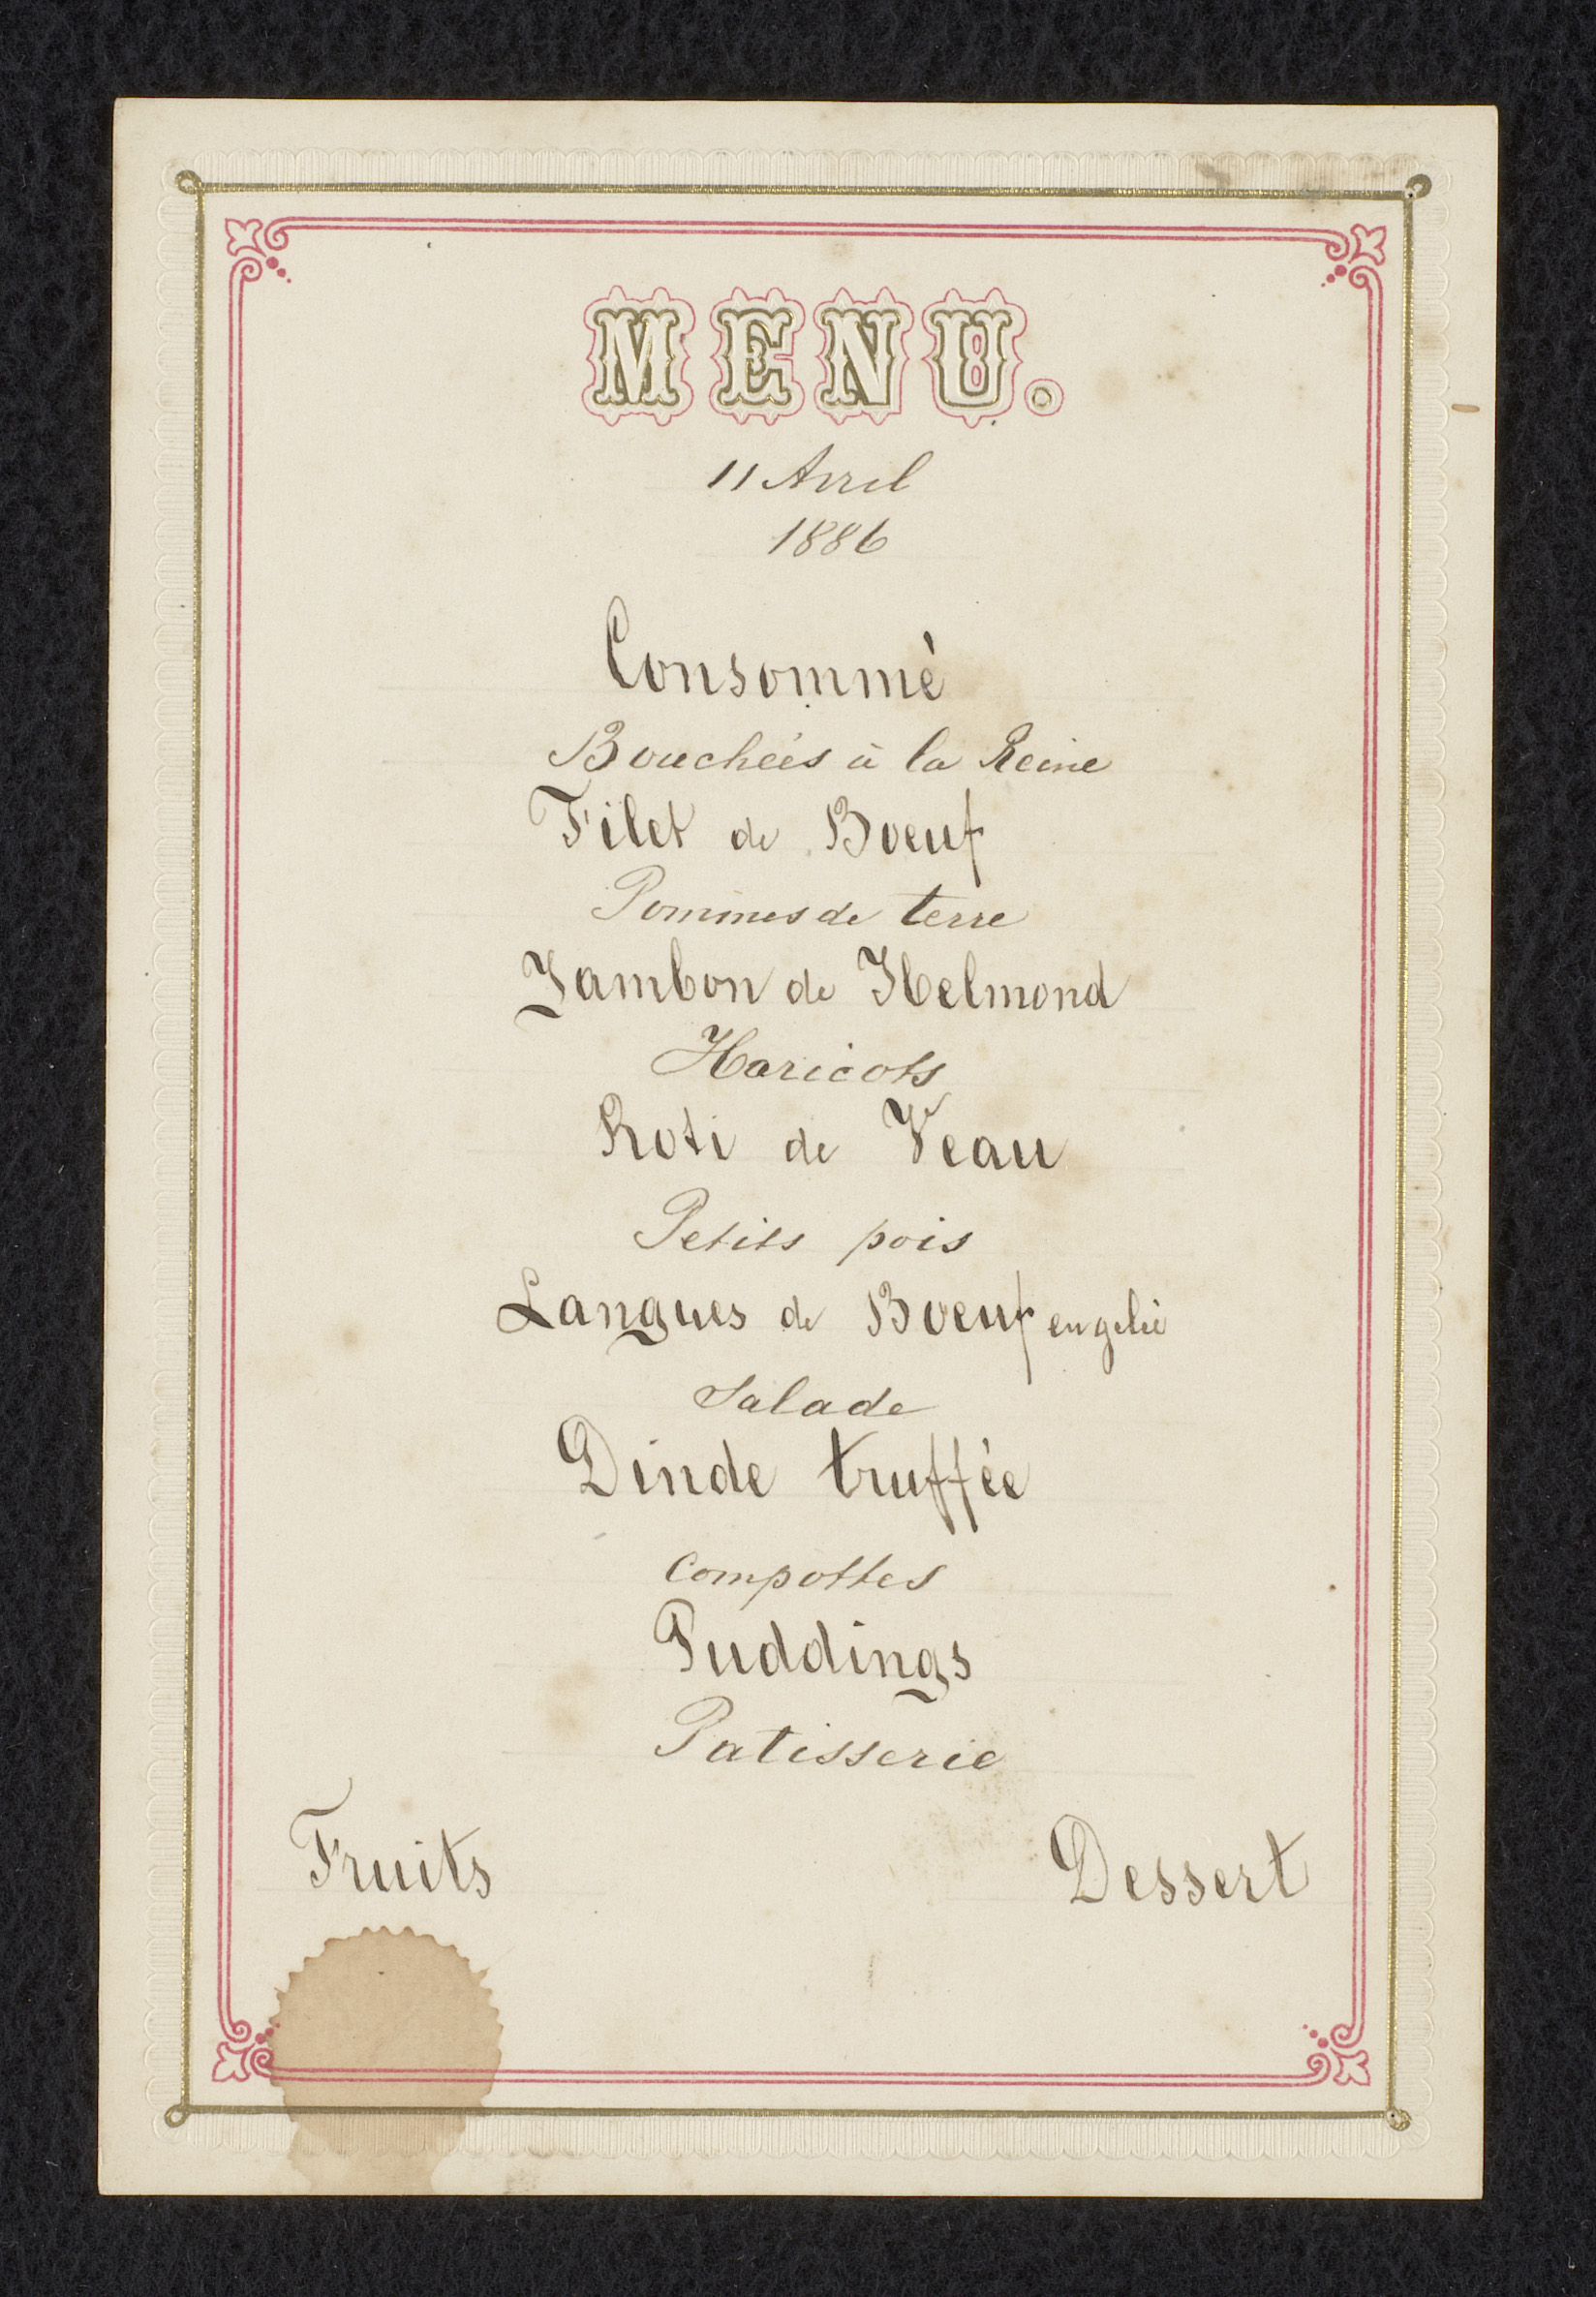 MENU.
11 Avril
1886
Consommè
Bouchées à la Reine
Filet de Boeuf
Pommes de terre
Jambon de Helmond
Haricots
Roti de Veau
Petits pois
Langues de Boeuf en gelée
Salade
Dinde truffèe
Compottes
Puddings
Patisserie
Fruits Dessert